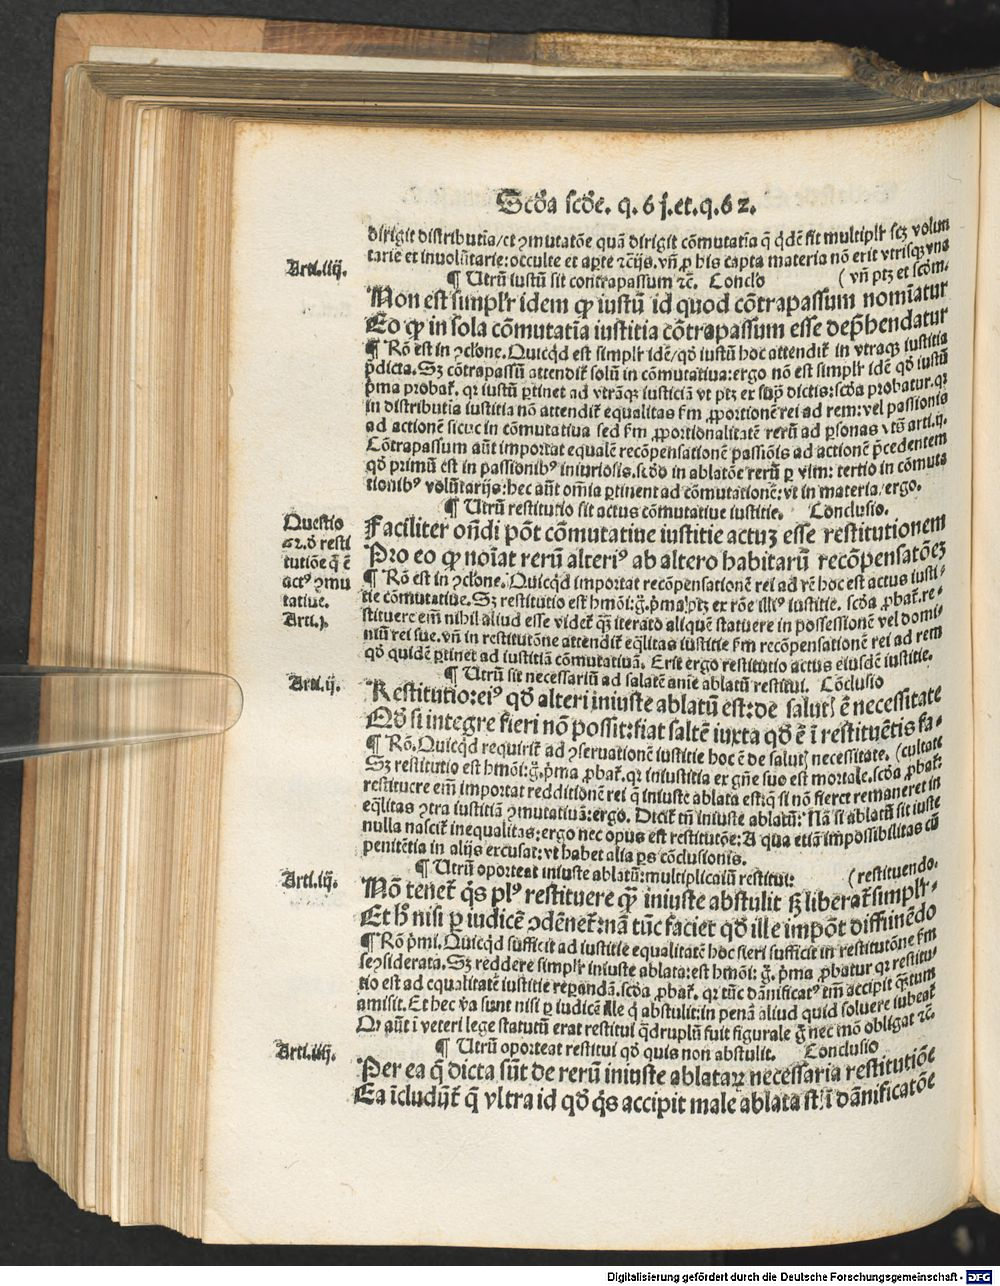 Scďa scďe. q. 6 j. et. q. 6 2.
dirigit distributīa/et ꝯmutatōe quā dirigit cōmutatīa q̄ qdē fit multiplr̄ scꝫ volun
tarie et inuolūtarie: occulte et aꝑte ⁊c̄ijs. vn̄ ꝓ his capta materia nō erit vtrisqꝫ vna
Arti. iiij.
¶ Utrū iustū sit contrapassum ⁊c̄. Conclo (vn̄ ptꝫ et scďm.
Non est simplr̄ idem ꝙ iustū id quod cōtrapassum nomīatur
Eo ꝙ in sola cōmutatīa iustitia cōtrapassum esse dep̄hendatur
¶ Rō est in ꝯclōne. Quicqd est simplr̄ idē/qď iustū hoc attendit̄ in vtraqꝫ iustitia
p̄dicta. Sꝫ cōtrapassū attendit̄ solū in cōmutatiua: ergo nō est simplr̄ idē qď iustū
p̄ma probat̄. qr iustū ꝑtinet ad vtrāqꝫ iusticiā vt ptꝫ ex sup̄ dictis: scďa probatur. qr
in distributīa iustitia nō attendit̄ equalitas ẜm ꝓportionē rei ad rem: vel passionis
ad actionē sicuc in cōmutatiua sed ẜm ꝓportionalitatē rerū ad ꝑsonas vts̄ arti. ij.
Cōtrapassum aūt importat equalē recōpensationē passiōis ad actionē p̄cedentem
qď primū est in passionibꝰ iniuriosis. scďo in ablatōe rerū ꝑ vim: tertio in cōmuta
tionibꝰ volūtarijs: hec aūt om̄ia ꝑtinent ad cōmutationē: vt in materia/ergo.
¶ Utrū restitutio sit actus cōmutatiue iustitie. Conclusio.
Questio
62. ď resti
tutiōe q̄ ē
actꝰ ꝯmu
tatiue.
Arti. j.
Faciliter on̄di pōt cōmutatiue iustitie actuꝫ esse restitutionem
Pro eo ꝙ noīat rerū alteriꝰ ab altero habitarū recōpensatōeꝫ
¶ Rō est in ꝯclōne. Quicqd importat recōpensationē rei ad rē hoc est actus iusti-
tie cōmutatiue. Sꝫ restitutio est hmōi: g̃. p̄ma ptꝫ ex rōe illiꝰ iustitie. scďa ꝓbat̄. re-
stituere em̄ nihil aliud esse videt̄ qꝫ iterato aliquē statuere in possessionē vel domi-
niū rei sue. vn̄ in restitutōne attendit̄ eq̄litas iustitie ẜm recōpensationē rei ad rem
qď quidē ꝑtinet ad iustitiā cōmutatiuā. Erit ergo restitutio actus eiusdē iustitie.
Arti. ij.
¶ Utrū sit necessariū ad salutē anīe ablatū restitui. Cōclusio
Restitutio: eiꝰ qď alteri iniuste ablatū est: de salutꝭ ē necessitate
Qď si integre fieri nō possit: fiat saltē iuxta qď ē ī restituētis fa-
¶ Rō. Quicqd requirit̄ ad ꝯseruationē iustitie hoc ē de salutꝭ necessitate. (cultate
Sꝫ restitutio est hmōi: g̃. p̄ma ꝓbat̄. qr iniustitia ex gn̄e suo est mortale. scďa ꝓbat̄:
restituere em̄ importat redditionē rei q̄ iniuste ablata est: q̄ si nō fieret remaneret in
eq̄litas ꝯtra iustitiā ꝯmutatiuā: ergo. Dicit̄ tn̄ iniuste ablatū: Nā si ablatū sit iuste
nulla nascit̄ inequalitas: ergo nec opus est restitutōe: A qua etiā impossibilitas cū
penitētia in alijs excusat: vt habet alia ꝑs cōclusionis.
Arti. iij.
¶ Utrū oporteat iniuste ablatū: multiplicatū restitui: (restituendo.
Nō tenet̄ qs plꝰ restituere ꝙ iniuste abstulit sꝫ liberat̄ simplr̄-
Et hͦ nisi ꝑ iudicē ꝯdēnet̄: nā tūc faciet qď ille impōt diffinēdo
¶ Rō p̄mi. Quicqd sufficit ad iustitie equalitatē hoc fieri sufficit in restitutōne ẜm
se ꝯsiderata. Sꝫ reddere simplr̄ iniuste ablata: est hmōi: g̃. p̄ma ꝓbatur qr restitu-
tio est ad equalitatē iustitie reparandā. scďa ꝓbat̄. qr tūc dānificatꝰ tm̄ accipit q̄ntum
amisit. Et hec v̄a sunt nisi ꝑ iudicē ille q̄ abstulit: in penā aliud quid soluere iubeat̄
Qr aūt ī veteri lege statutū erat restitui q̄druplū fuit figurale g̃ nec mō obligat ⁊c̄.
Arti. iiij.
¶ Utrū oporteat restitui qď quis non abstulit. Conclusio
Per ea q̄ dicta sūt de rerū iniuste ablataꝝ necessaria restitutiōe
Ea īcludūt̄ q̄ vltra id qď qs accipit male ablata st̄ ī dānificatōe
Digitalisierung gefördert durch die Deutsche Forschungsgemeinschaft - DFG